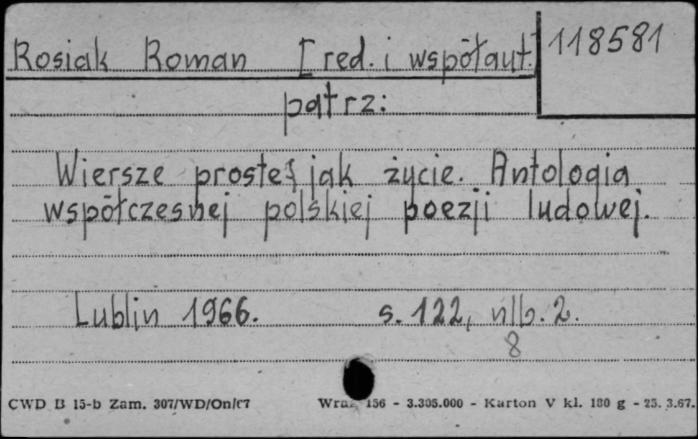 Rosiak Roman [red. i współaut.] 118581
patrz:
Wiersze proste jak życie. Antologia
współczesnej polskiej poezji ludowej.
Lublin 1966. s. 122, nlb. 2.
8
CWD B 15-b Zam. 307/WD/On/67 156 - 3.305.000 - Karton V kl. 180 g - 25. 3.67.